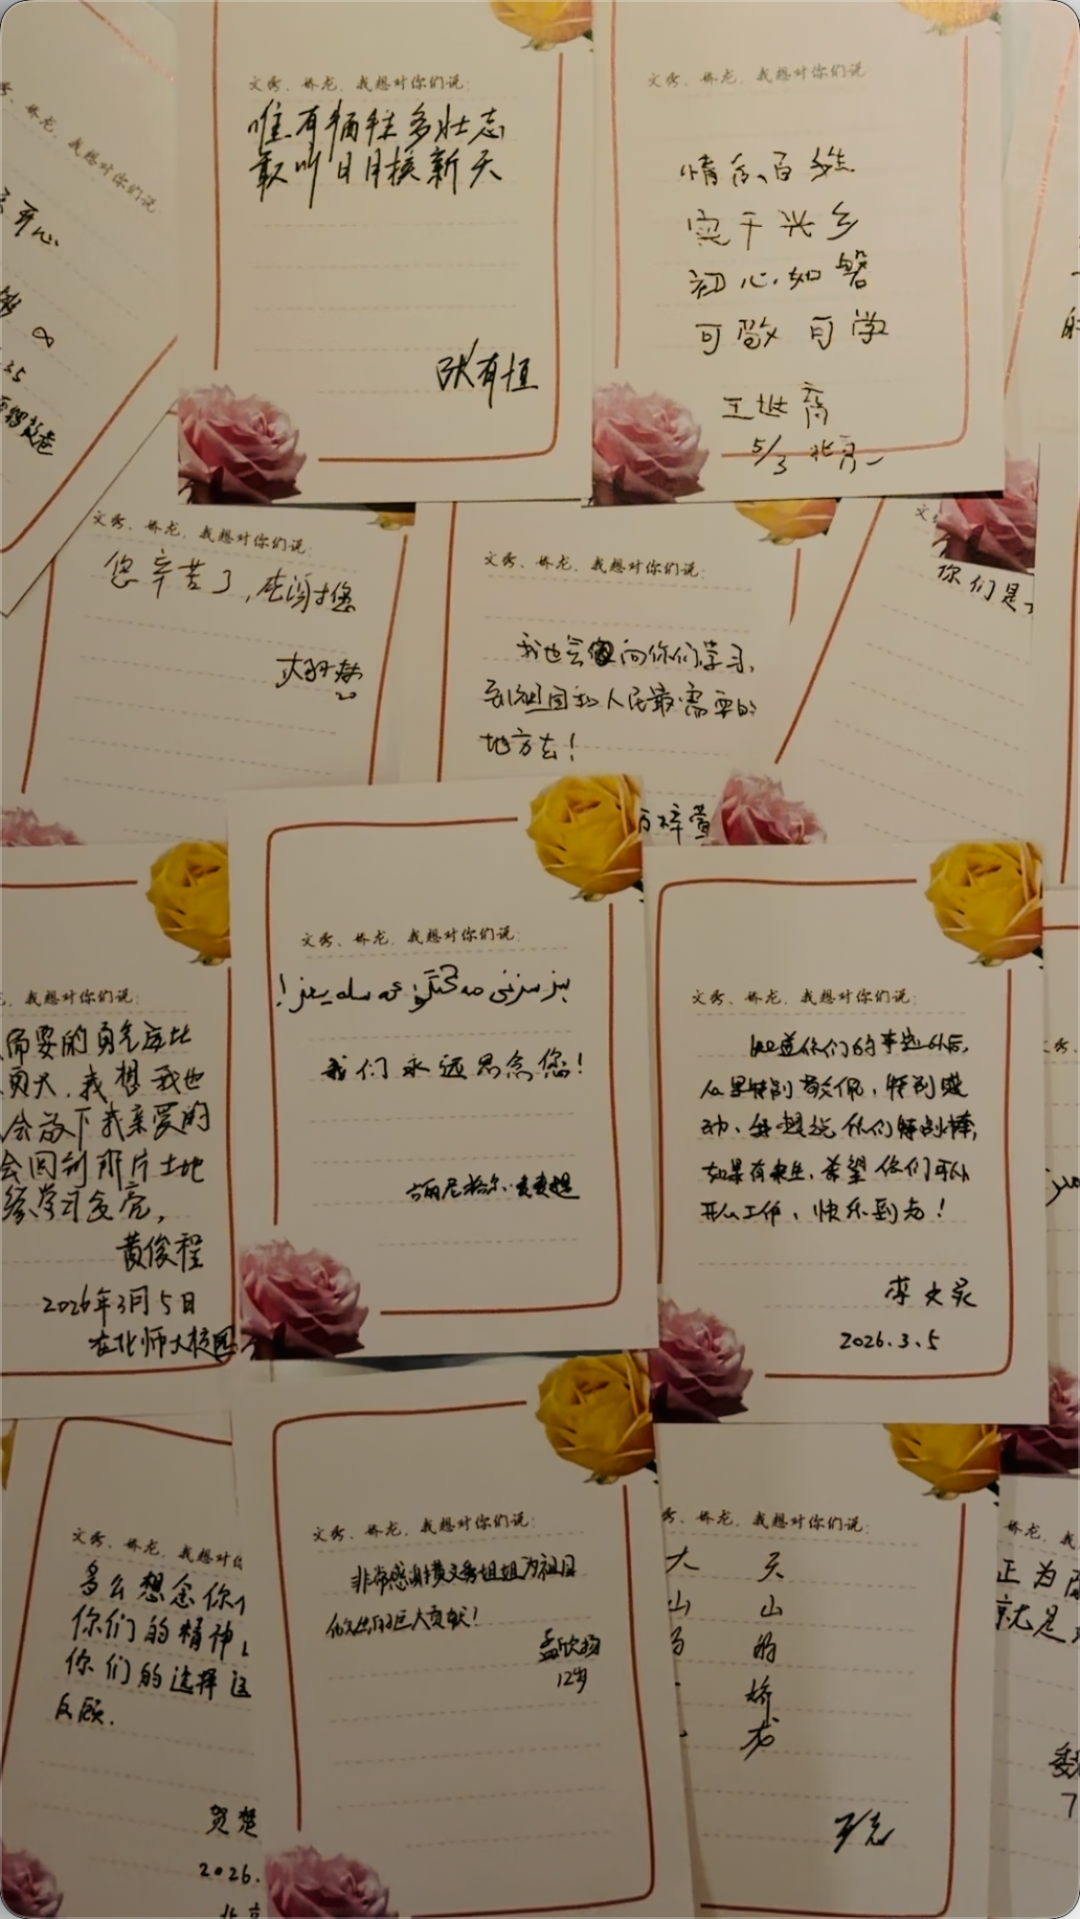 娇龙，我想对你们说：
开心
文秀、娇龙，我想对你们说：
唯有牺牲多壮志
敢叫日月换新天
文秀、娇龙，我想对你们说：
情系百姓
实干兴乡
初心如磐
可敬可学
5/3 北京
文秀、娇龙，我想对你们说：
您辛苦了，
文秀、娇龙，我想对你们说：
我也会向你们学习，
到祖国和人民最需要的
地方去！
方梓萱
你们是
我想对你们说：
需要的勇气远比
更大，我想我也
会放下我亲爱的
会回到那片土地
黄俊程
2026年3月5日
在北师大校园
文秀、娇龙，我想对你们说：
بىز سىزنى مەڭگۈ ئەسلەيمىز!
我们永远思念您！
文秀、娇龙，我想对你们说：
知道你们的事迹以后，
特别敬佩，特别感
动，我想说你们特别棒，
如果有来生，希望你们可以
开心工作，快乐到老！
2026.3.5
文秀、娇龙，我想对你
多么想念你们
你们的精神
你们的选择
反顾．
贺楚
2026.
文秀、娇龙，我想对你们说：
非常感谢黄文秀姐姐为祖国
做出的巨大贡献！
孟欣
12岁
秀、娇龙，我想对你们说：
大 天
山 山
的 的
娇
龙
文秀、娇龙，我
正为
就是